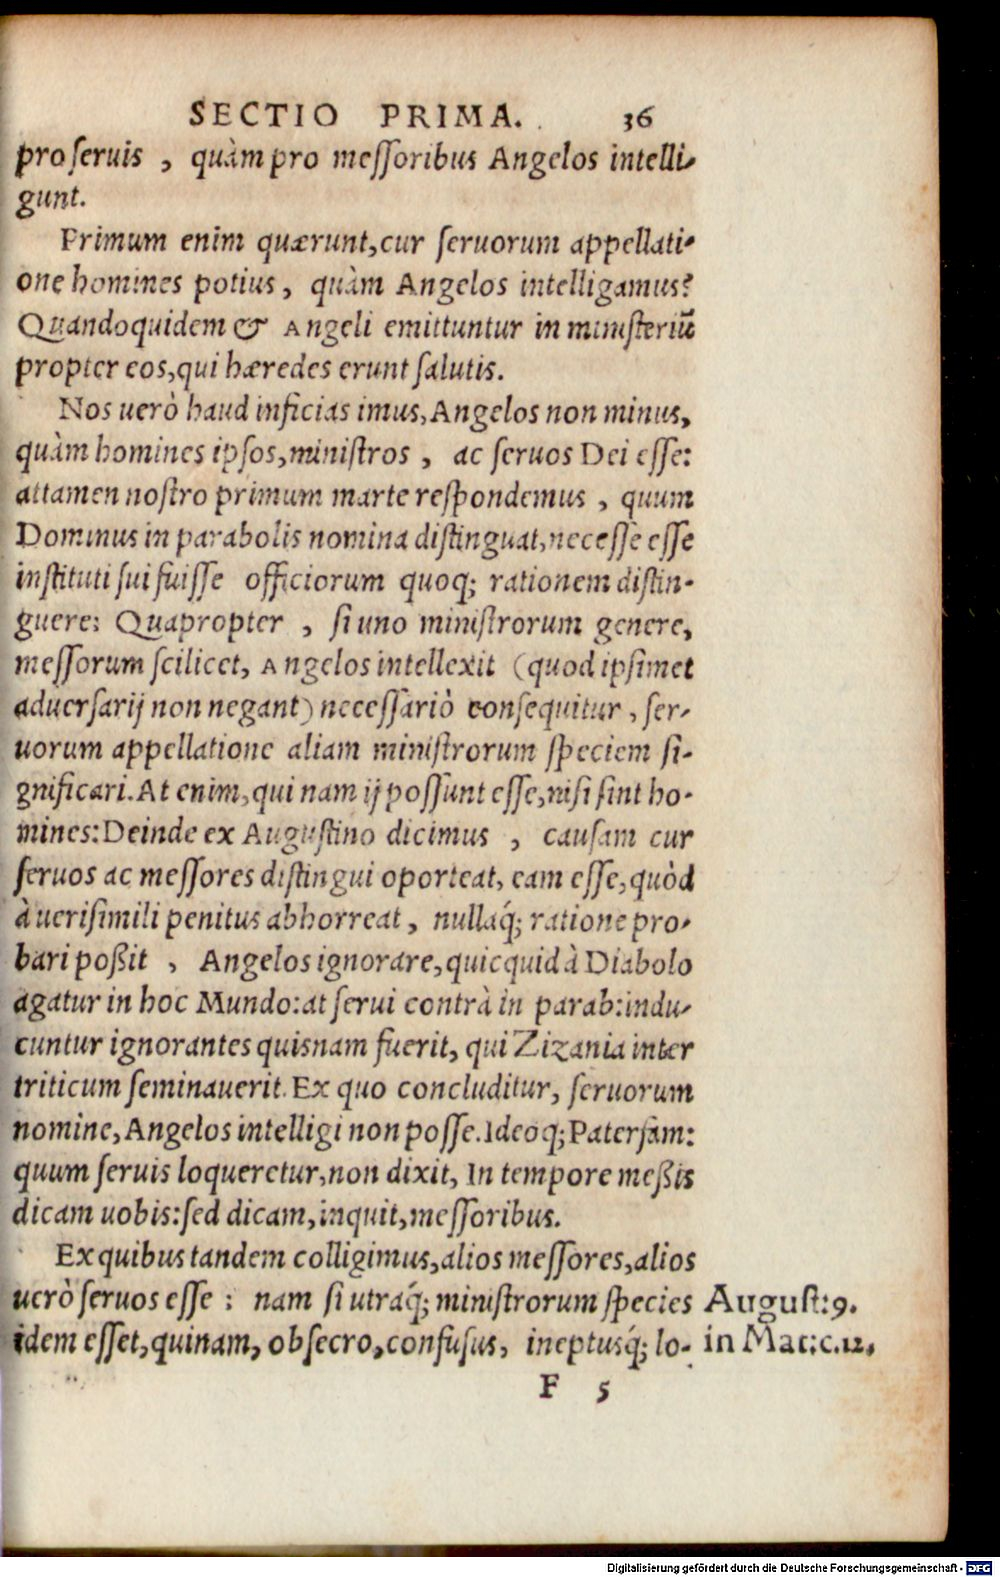 SECTIO PRIMA. 36
pro ſeruis , quàm pro meſſoribus Angelos intelli-
gunt.
Primum enim quærunt, cur ſeruorum appellati-
one homines potius, quàm Angelos intelligamus?
Quandoquidem & Angeli emittuntur in miniſteriū
propter eos, qui hæredes erunt ſalutis.
Nos uerò haud inficias imus, Angelos non minus,
quàm homines ipſos, miniſtros , ac ſeruos Dei eſſe:
attamen noſtro primum marte reſpondemus , quum
Dominus in parabolis nomina diſtinguat, neceſſe eſſe
inſtituti ſui fuiſſe officiorum quoq; rationem diſtin-
guere: Quapropter , ſi uno miniſtrorum genere,
meſſorum ſcilicet, Angelos intellexit (quod ipſimet
aduerſarij non negant) neceſſariò conſequitur , ſer-
uorum appellatione aliam miniſtrorum ſpeciem ſi-
gnificari. At enim, qui nam ij poſſunt eſſe, niſi ſint ho-
mines: Deinde ex Auguſtino dicimus , cauſam cur
ſeruos ac meſſores diſtingui oporteat, eam eſſe, quòd
à ueriſimili penitus abhorreat , nullaq́; ratione pro-
bari poßit , Angelos ignorare, quicquid à Diabolo
agatur in hoc Mundo: at ſerui contrà in parab: indu-
cuntur ignorantes quisnam fuerit, qui Zizania inter
triticum ſeminauerit. Ex quo concluditur, ſeruorum
nomine, Angelos intelligi non poſſe. Ideoq; Paterfam:
quum ſeruis loqueretur, non dixit, In tempore meßis
dicam uobis: ſed dicam, inquit, meſſoribus.
Ex quibus tandem colligimus, alios meſſores, alios
uerò ſeruos eſſe : nam ſi utraq́; miniſtrorum ſpecies
idem eſſet, quinam, obſecro, confuſus, ineptusq́; lo-
Auguſt: 9.
in Mat: c. 12.
F 5
Digitalisierung gefördert durch die Deutsche Forschungsgemeinschaft - DFG